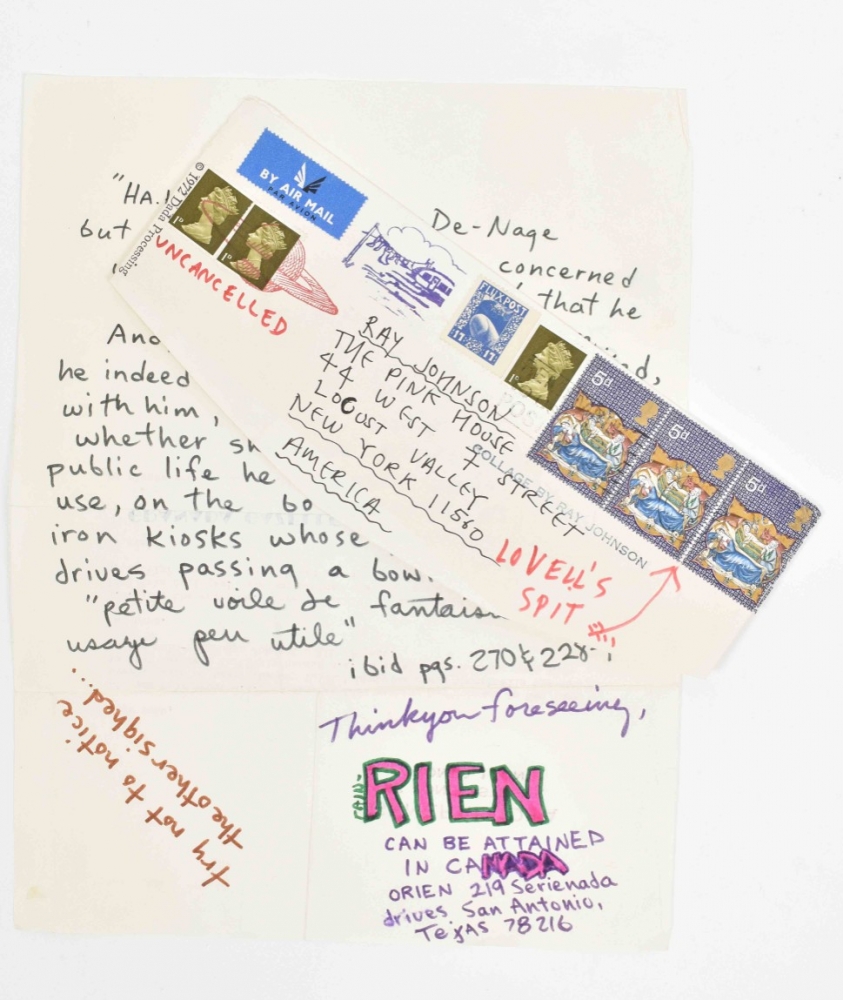 "HA.
De-Nage
but
concerned
that he
And
he indeed
with him,
whether sh
public life he
use, on the bo
iron kiosks whose
drives passing a bow.
"petite voile de fantais
usage peu utile"
ibid pgs. 270 &
try not to notice
the other sighed...
Thinkyou foreseeing,
RAIN-
RIEN
CAN BE ATTAINED
IN CANADA
ORIEN 219 Serienada
drives San Antonio,
Texas 78216
© 1972 Dada Processing
BY AIR MAIL
PAR AVION
1D
1D
UNCANCELLED
FLUXPOST
17 17
1D
5d
5d
5d
RAY JOHNSON
THE PINK HOUSE
44 WEST 7 STREET
LOCUST VALLEY
NEW YORK 11560
AMERICA
COLLAGE BY RAY JOHNSON
LOVELL'S
SPIT